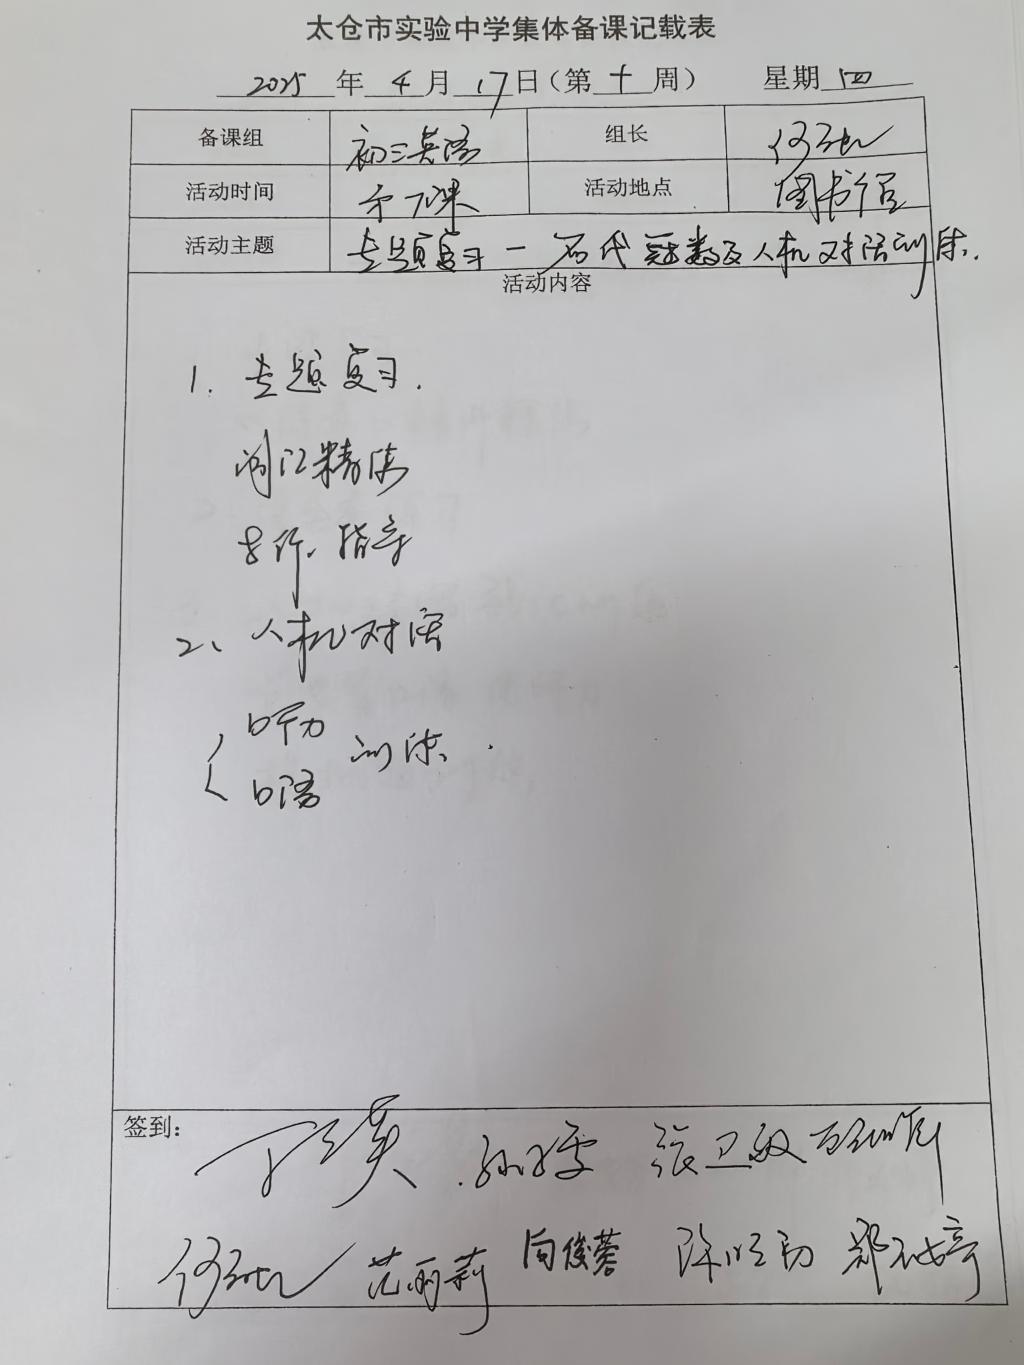 太仓市实验中学集体备课记载表
2025 年 4 月 17 日（第 十 周） 星期 四
备课组 初三英语 组长
活动时间 下课 活动地点 图书馆
活动主题 专题复习 — 代 冠 数及人机对话训练.
活动内容
1. 专题复习.
精练
指导
2、人机对话
听力
口语
训练.
签到：
张卫敏
范丽莉 向俊蓉